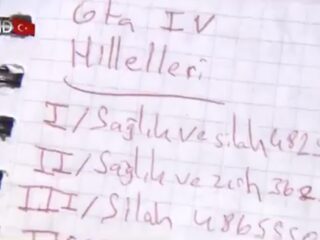 Gta IV
Hillelleri
I/Sağlık ve silah 482
II/Sağlık ve zırh 362
III/Silah 486555